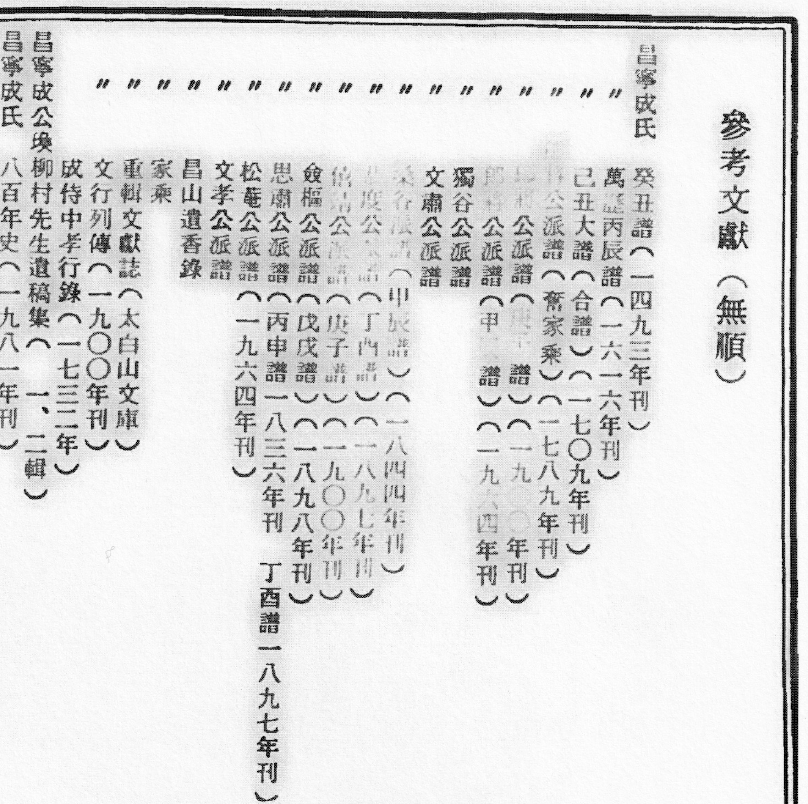 參考文獻（無順）
昌寧成氏 癸丑譜（一四九三年刊）
〃 萬歷丙辰譜（一六一六年刊）
〃 己丑大譜（合譜）（一七〇九年刊）
〃 公派譜（奮家乘）（一七八九年刊）
〃 公派譜（譜）（一九〇年刊）
〃 公派譜（甲譜）（一九六四年刊）
〃 獨谷公派譜
〃 文肅公派譜
〃 谷派譜（甲辰譜）（一八四四年刊）
〃 度公派譜（丁酉譜）（一八九七年刊）
〃 僖靖公派譜（庚子譜）（一九〇〇年刊）
〃 僉樞公派譜（戊戌譜）（一八九八年刊）
〃 思肅公派譜（丙申譜一八三六年刊 丁酉譜一八九七年刊）
〃 松菴公派譜（一九六四年刊）
〃 文孝公派譜
〃 昌山遺香錄
〃 家乘
〃 重輯文獻誌（太白山文庫）
〃 文行列傳（一九〇〇年刊）
成侍中孝行錄（一七三二年）
昌寧成公煥柳村先生遺稿集（一、二輯）
昌寧成氏 八百年史（一九八一年刊）